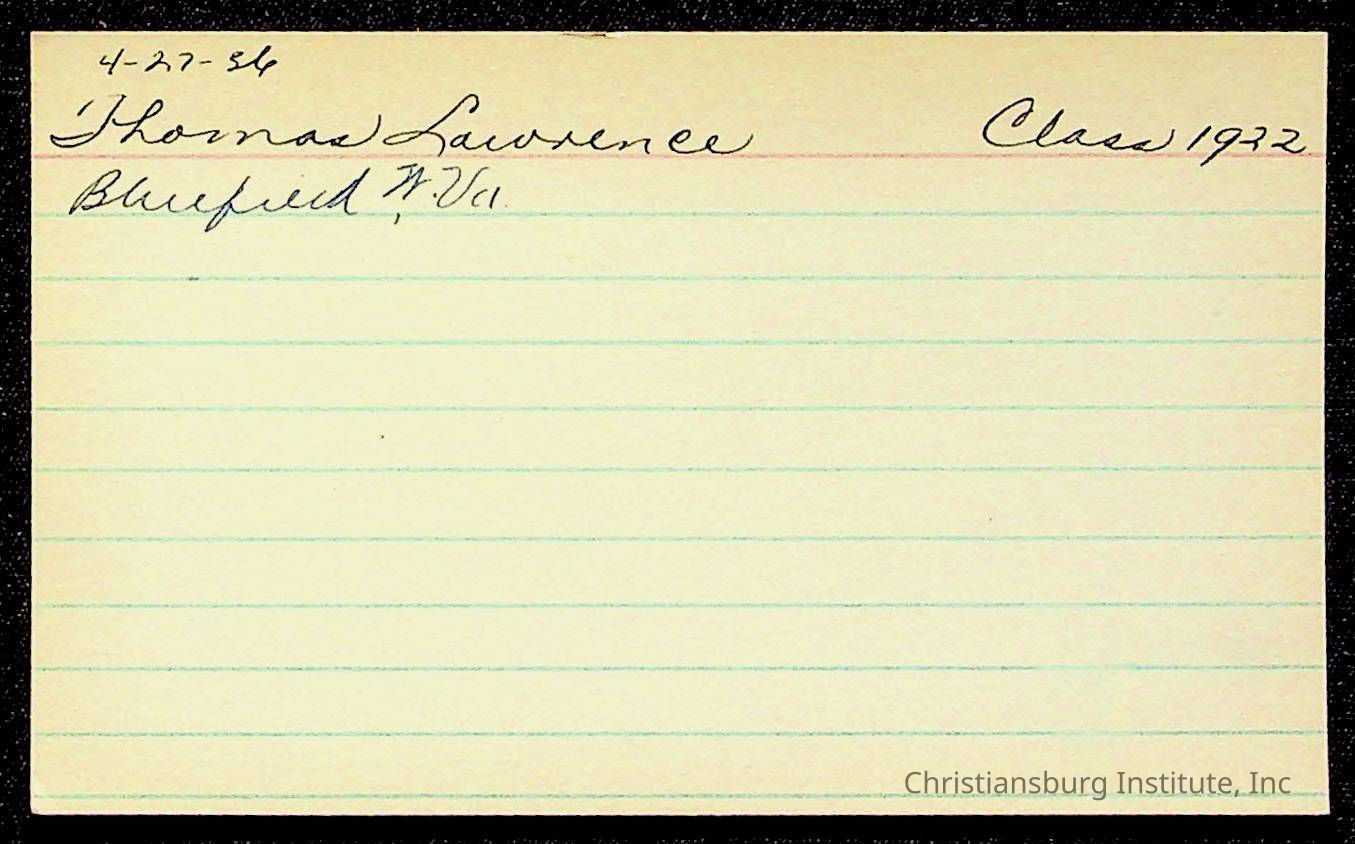 4-27-36
Thomas Lawrence Class 1922
Bluefield W.Va.
Christiansburg Institute, Inc